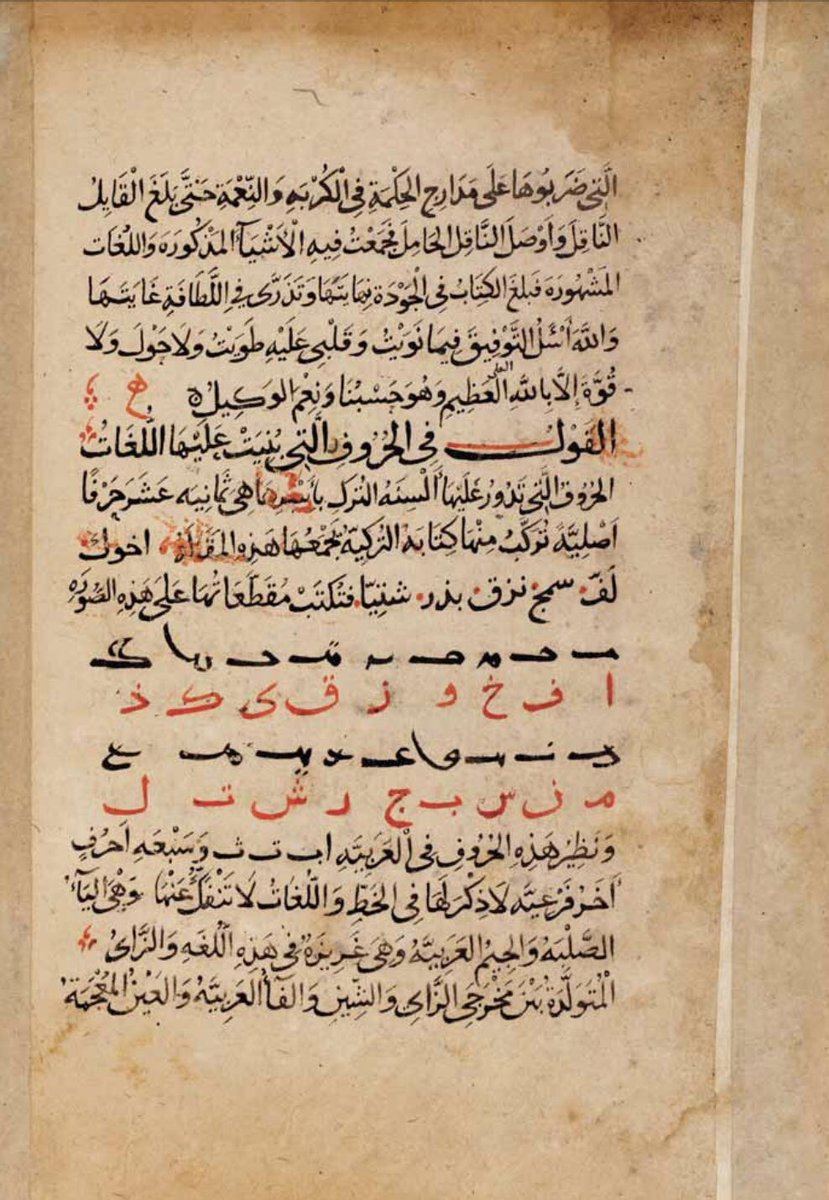 الَّتِى ضَرَبُوهَا عَلَى مَدَارِجِ الحِكْمَةِ فِى الْكُرْبَةِ وَالنِّعْمَةِ حَتَّى بَلَغَ الْقَايِلُ
النَّاقِلَ وَاَوْصَلَ النَّاقِل الحَامِلَ فَجَمَعْتُ فِيهِ الْاَشْيَآءَ المَذْكُورَةَ وَاللُّغَات
المَشْهُورَةَ فَبلغَ الكِتَابُ فِى الجَوْدَةِ نِهَايَتَهَا وَتَذَرَّى فِى اللَّطَافَةِ غَايَتَهَا
وَاللهَ اَسْئَلُ التَّوْفِيقَ فِيمَا نَوَيْتُ وَقَلْبِى عَلَيْهِ طَوَيْتُ وَلَا حَوْلَ وَلَا
قُوَّةَ إلَّا بِاللهِ العلى العَظِيمِ وَهُوَ حَسْبُنَا وَنِعْمَ الوَكِيلُ
القَوْلُ فى الحُرُوفِ الَّتِى بُنِيَتْ عَلَيْهَا اللُّغَاتُ
الحُرُوفُ الَّتِى تَدُورُ عَلَيْهَا اَلْسِنَةُ التُرْكِ بأَسْرِهَا هِىَ ثَمَانِيَه عَشَرَ حَرْفًا
اَصْلِيَّةً تُرَكَّبُ مِنْهَا كِتَابَة التُّرْكِيَّة تَجْمَعُهَا هَذِهِ المَقَالَة اخوك
لَفّ سمج نزق بذر شتيّا فَتكتَبُ مُقَطَّعَاتُهَا عَلَى هَذِهِ الصُّورَةِ
ا ف خ و ز ق ى ك ذ
م ن س ب ج ر ش ت ل
وَنَظِيرُ هَذِهِ الحُرُوفِ فى الْعَرَبِيَّةِ اب ت ث وَسَبْعَة اَحْرُفٍ
اُخَرُ فَرْعِيَّه لَا ذِكْرَ لَهَا فِى الخَطِّ وَاللُّغَاتُ لَا تَنْفَكُّ عَنْهَا وَهْىَ البَآءُ
الصَّلْبَة وَالجِيمُ العَرَبِيَّة وَهِىَ عَزِيزَةٌ فى هَذِهِ اللُّغَةِ وَالزَّاىُ
الْمُتَوَلَّدَةُ بَيْنَ مَخْرَجَىِ الزَّاىِ وَالشِّينِ وَالفَآءُ العَرَبِيَّة وَالغَيْنُ المُعْجَمَةُ